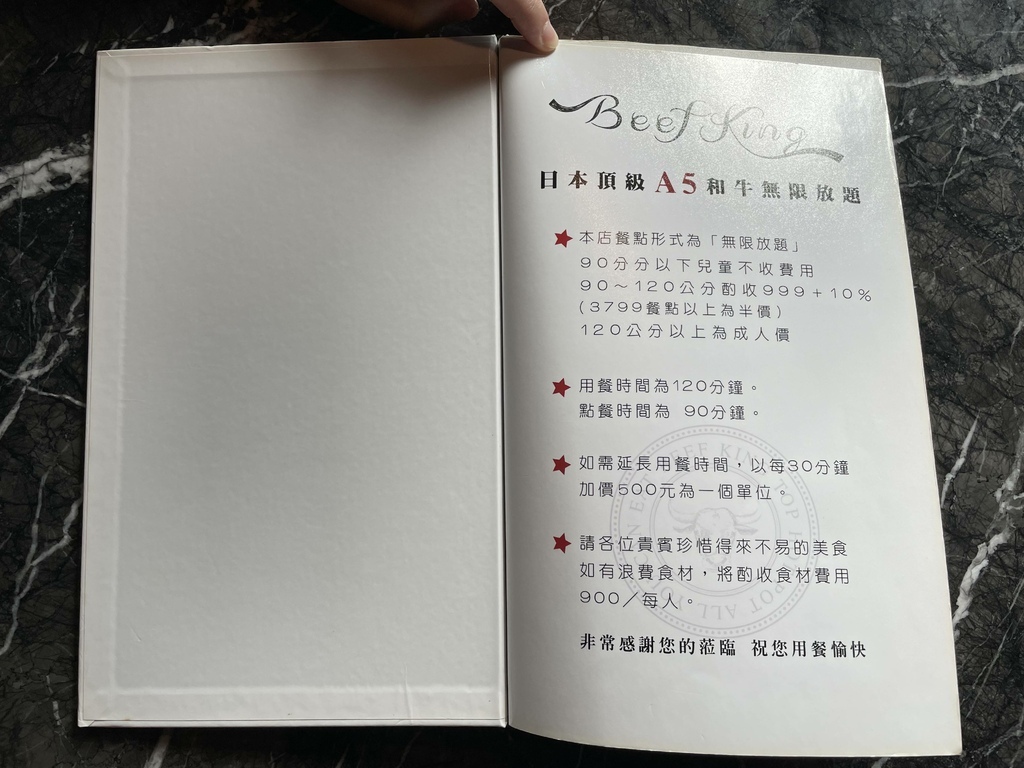 Beef King
日本頂級A5和牛無限放題
★本店餐點形式為「無限放題」
90分分以下兒童不收費用
90～120公分酌收999+10%
(3799餐點以上為半價)
120公分以上為成人價
★用餐時間為120分鐘。
點餐時間為 90分鐘。
★如需延長用餐時間，以每30分鐘
加價500元為一個單位。
★請各位貴賓珍惜得來不易的美食
如有浪費食材，將酌收食材費用
900／每人。
非常感謝您的蒞臨 祝您用餐愉快